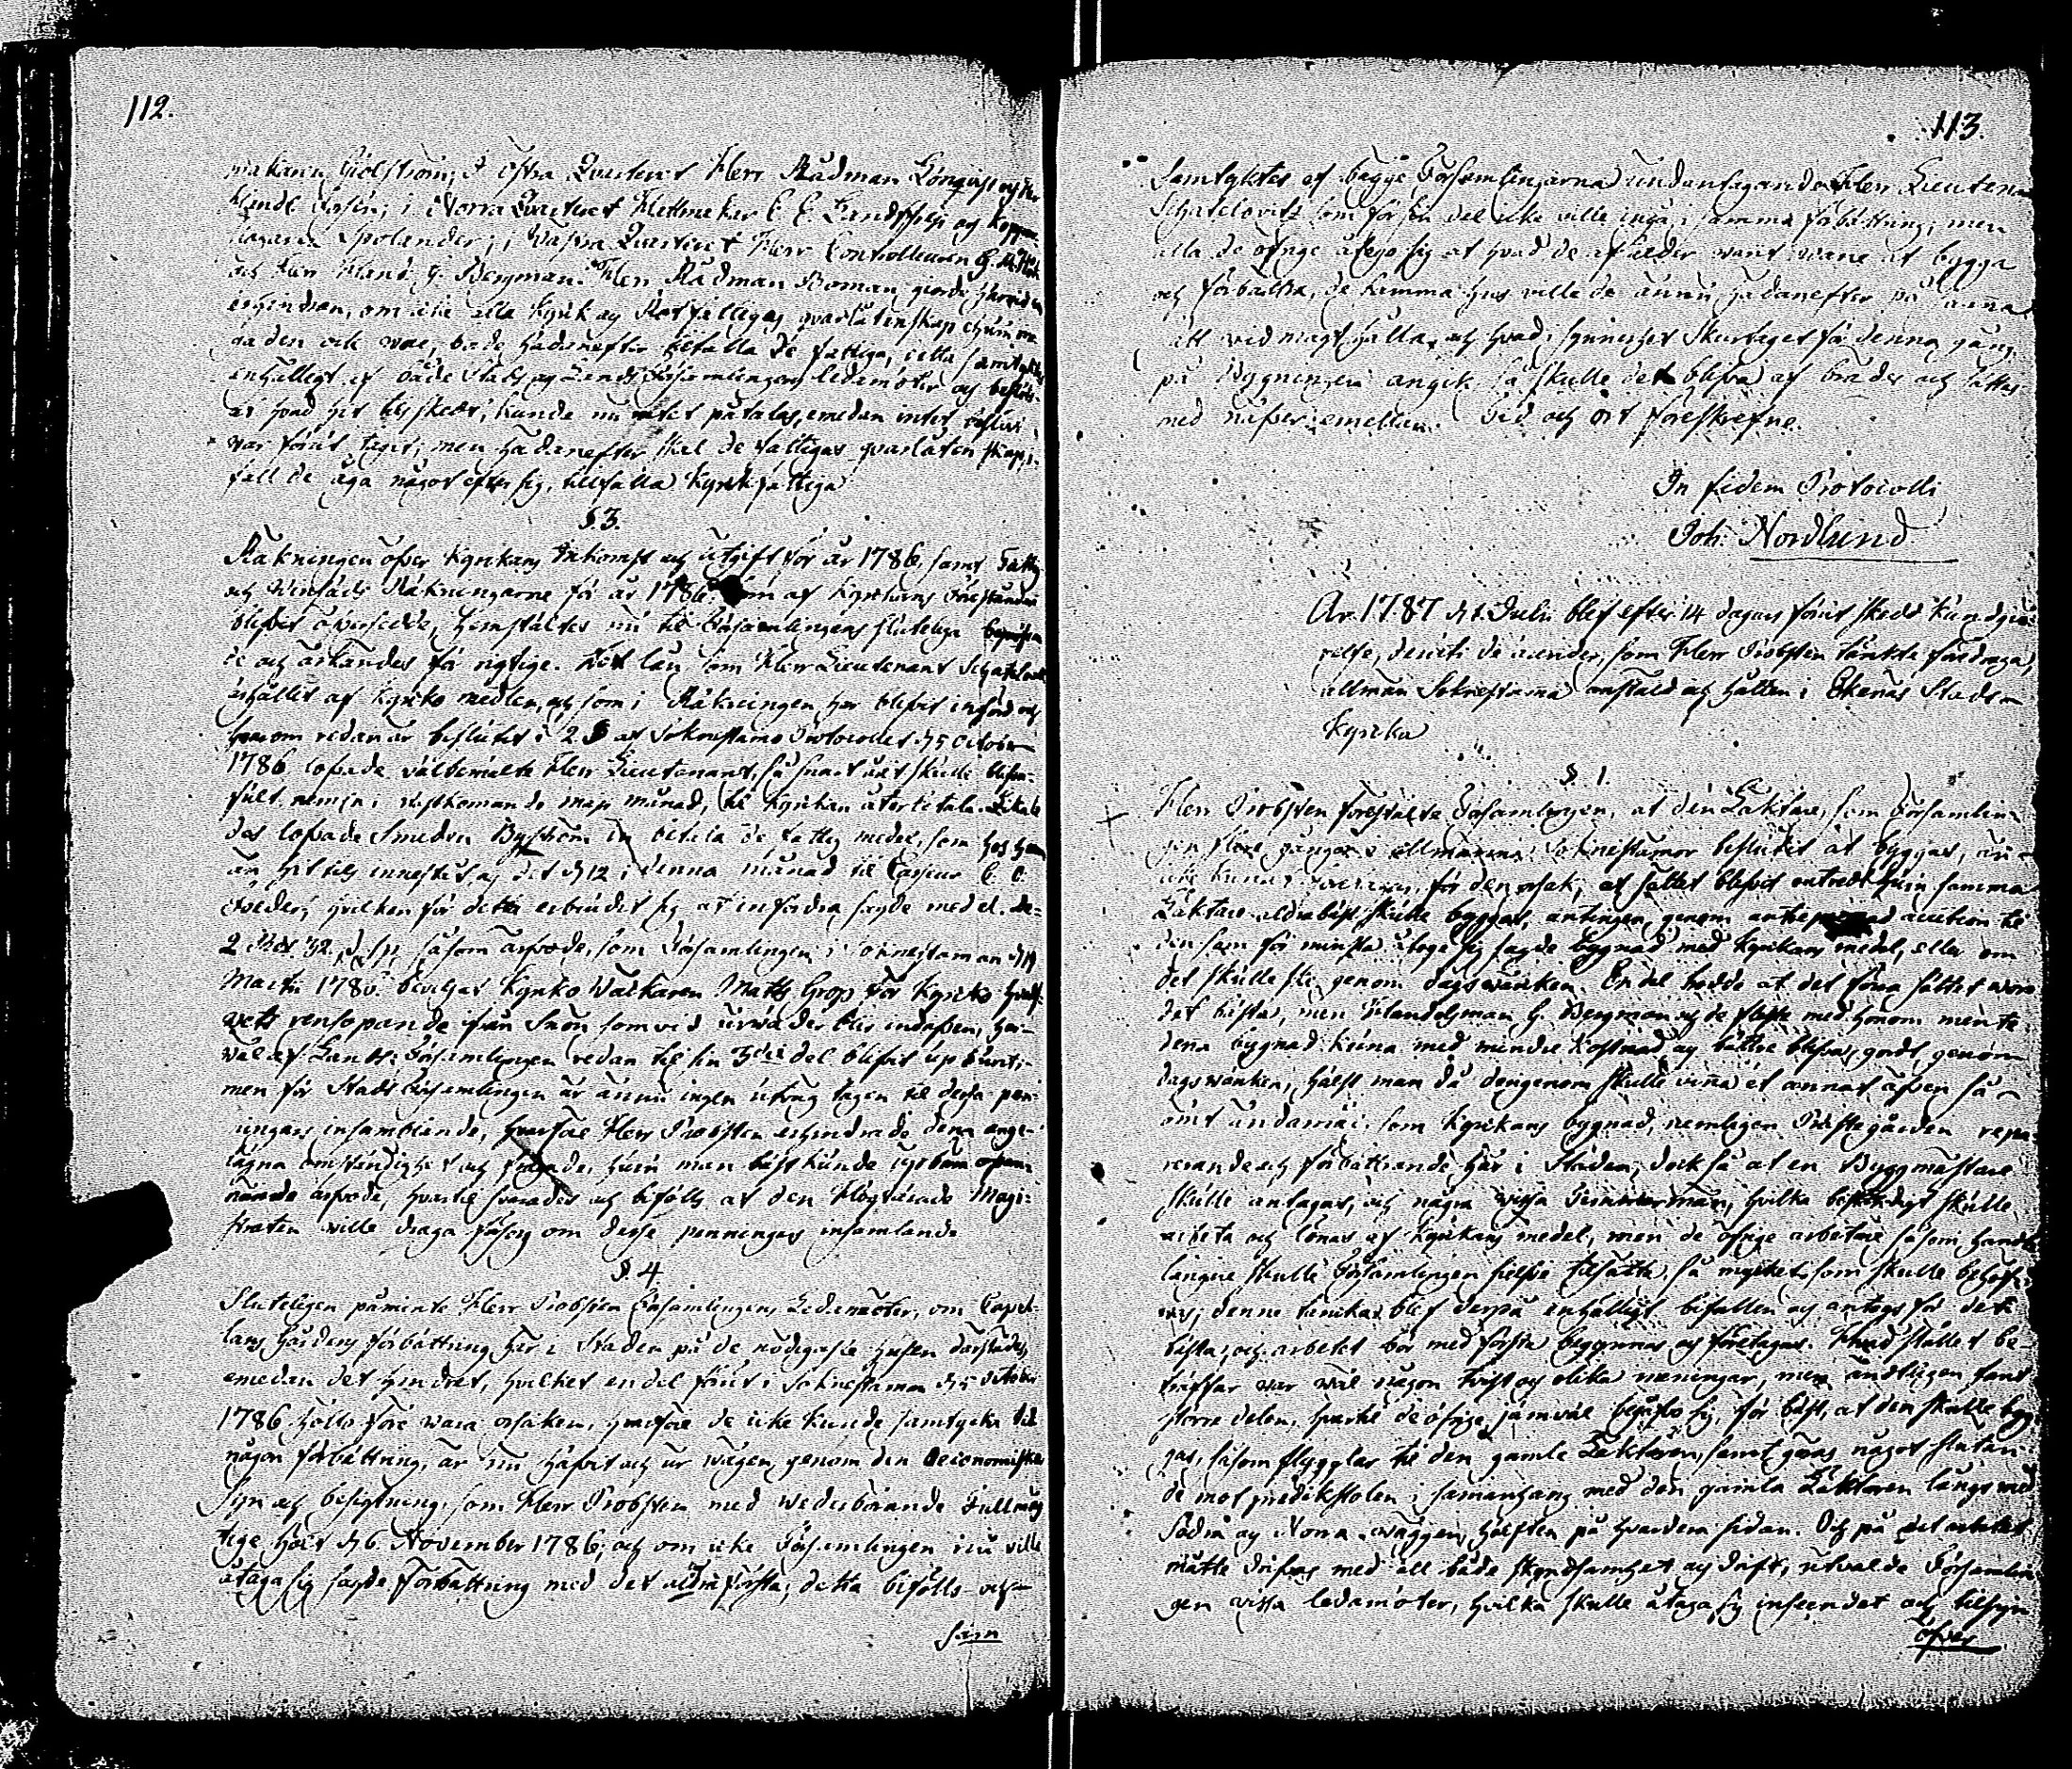 112.
makaren Giölström; I östra Quarteret Herr Rådman Lönqvist och Herr
Handl. Rosén; i Norra Quarteret Hattmakar C. C. Landtship och koppar-
slagaren Spolander; i Västra Quarteret Herr Controlleuren G.
och Herr Handl. G. Bergman. Herr Rådman Boman giorde härvid en
erhindran, om icke alla Kyrk och Rotfattigas qvarlåtenskap ehuru ringa
den ock vore, borde hädanefter tilfalla de fattiga, detta samtyktes
enhälligt af både Stads och Lands Församlingens ledamöter, och beslöts
at hvad hit tils skedt, kunde nu intet påtalas, emedan intet beslut
var förut taget; men hädanefter skal de fattigas qvarlåtenskap, i
fall de äga något efter sig, tillfalla Kyrk fattiga
§. 3.
Räkningen öfver Kyrkans Inkomst och utgift för år 1786, samt Fattig
och Räkningarne för år 1786. som af Kyrkans Föreståndare
blifvit öfversedde, hemstältes nu til Församlingens slutelige
de och ärkändes för rigtige. Det lån som Herr Lieutenant Schatelovitz
erhållit af Kyrko medlen, och som i Räkningen har blifvit införd och
hvarom redan är beslutit i 2 § af Sokneståmo Protocollet d. 5 October
1786 lofvade välbemälte Herr Lieutenant, så snart året skulle blifva
fult, nemln i nästkomande maji månad, til Kyrkan återbetala. Lika le-
des lofvade Smeden Byström betala de fattig medel, som hos honom
än hit tils innestår, och det d. 12 i denna månad til Casseur C. C.
hvilken för detta erbudit sig at infordra sagde medel. De
2 Rd. 32. såsom arfvode, som Församlingen i Sokneståman d. 19
Martii 1786. beviljat Kyrko Väktaren Matts Grop för Kyrko hvalf-
vets rensopande ifrån Snön som vid urväder blir indrifven, har
väl af Lands Församlingen redan til sin 3die del blifvit up buret;
men för Stads Församlingen är ännu ingen utväg tagen til dessa pen-
ningars insamlande, hvarföre Herr Probsten erhindrade denna ange-
lägna omständighet och frågade, huru man bäst kunde
nämnde arfvode, hvartil svarades och bifölls at den Högtärade Magi-
straten ville draga försorg om desse penningars insamlande
§. 4.
Sluteligen påminte Herr Probsten Församlingens Ledamöter, om Capel-
lans Gårdens förbättring här i Staden på de nödigaste husen därstädes
emedan det hindret, hvilket en del förut i Sokneståman d. 5 October
1786 hölls före vara orsaken, hvarföre de icke kunde samtycka til
någon förbättring, är nu häfvit och ur vägen genom den Oeconomiska
Syn och besigtning, som Herr Probsten med vederbörande Fullmäg-
tige höll d. 6. November 1786; och om icke Församlingen nu ville
åtaga sig sagde förbättring med det aldraförsta; detta bifölls och
sam
113.
Samtyktes af bägge Församlingarna undantagande Herr Lieutenant
Schatelovitz som för sin del icke ville ingå i samma förbättring; men
alla de öfrige åtogo sig at hvad de af ålder varit vane at bygga
och förbättra, de samma hus ville de ännu hädanefter på lika
sätt vid magt hålla, och hvad i synnerhet Skortaget för denna gång
på Bygningen angik så skulle det blifva af bräder och sättas
med näfver emellan. Tid och ort föreskrefne.
In fidem Protocolli
Joh: Nordlund
År 1787 d. 1. Julii blef efter 14 dagars förut skedd kundgiö-
relse, deruti de ärender, som Herr Probsten tänkte föredraga,
allmän Sokneståma anstäld och hållen i Ekenäs Stads
Kyrka
§. 1.
Herr Probsten förestälte Församlingen, at den Läktare, som Församlin-
gen flere gångor i allmänna Sokneståmor beslutit at bygga, än
icke kunnat för den orsak, at sättet blifvit omtvistat huru samma
Läktare aldrabäst skulle byggas, antingen genom entrepenad auction til
den som för minsta åtoge sig sagde bygnad med Kyrkans medel, eller om
det skulle ske genom dagsvärken. En del trodde at det förra sättet vore
det bästa, men Handelsman G. Bergman och de fleste med honom mente
denna bygnad kunna med mindre kostnad och bättre blifva giord, genom
dagsvärken, hälst man då derigenom skulle vinna et annat äfven så
ömt ändamål, som Kyrkans bygnad, nemligen Prästegården repa-
rerande och förbättrande här i Staden, dock så at en Byggmästare
skulle antagas, och några vissa Timmermän, hvilka beständigt skulle
arbeta och lönas af Kyrkans medel, men de öfrige arbetare såsom handt-
langare skulle Församlingen sielfve tilsätta, så mycket som skulle behöf-
vas; denne tanckar blef derpå enhälligt bifallen och antogs för det
bästa, och arbetet bör med första begynnas och företagas. Hvad stället be-
träffar var väl någon tvist och olika meningar, men ändteligen fant
större delen, hvartil de öfrige jämväl beqväde sig, för bäst, at den skulle byg-
gas, såsom flygglar til den gamla Läktaren, samt göras något slutan-
de mot predikstolen i samanhang med den gamla Läktaren längs med
Södra och Norra väggen, hälften på hvardera sidan. Och på det arbetet
måtte drifvas med all både skyndsamhet och drift, utvalde Församlin-
gen vissa ledamöter, hvilka skulle åtaga sig inseendet och tilsyn
öfver